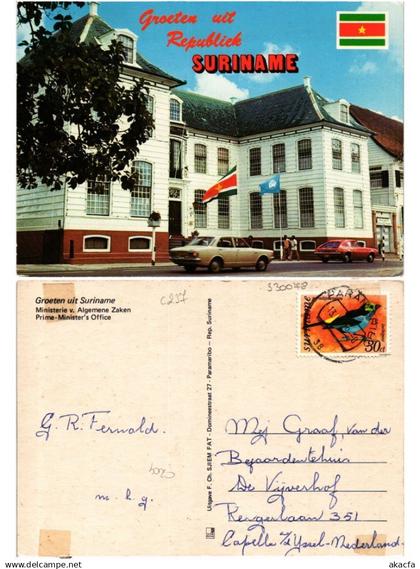 Groeten uit
Republiek
SURINAME
Groeten uit Suriname
Ministerie v. Algemene Zaken
Prime-Minister's Office
C237
S30048
PARAMARIBO
suriname
30ct
G. R. Fernald.
m.h.g.
Uitgave F. Ch. SJIEM FAT - Domineestraat 27 - Paramaribo - Rep. Suriname
Mej Graaf, van der
Bejaardentehuis
De Vijverhof
Rengerlaan 351
Capelle a/d Yssel - Nederland.
www.akacfa.com
akacfa